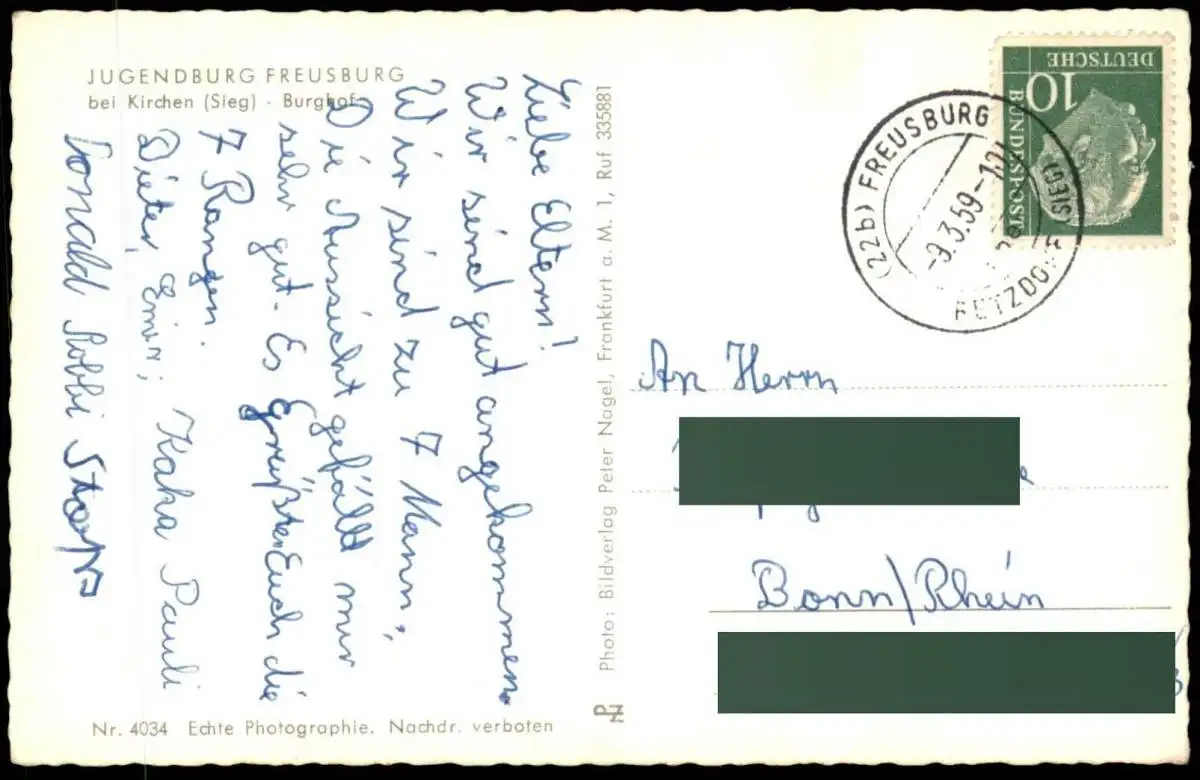 JUGENDBURG FREUSBURG
bei Kirchen (Sieg) · Burghof
Liebe Eltern!
Wir sind gut angekommen.
Wir sind zu 7 Mann,
Die Aussicht gefällt mir
sehr gut. Es grüßt Euch die
7 Rangen.
Dieter, Kaka Pauli
Donald Robbi
Nr. 4034 Echte Photographie. Nachdr. verboten
Photo: Bildverlag Peter Nagel, Frankfurt a. M. 1, Ruf 335881
PN
DEUTSCHE
BUNDESPOST
10
(22b) FREUSBURG
(SIEG)
-9.3.59-
An Herrn
Bonn/Rhein